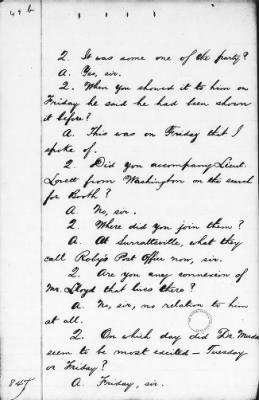 49 b
Q. It was some one of the party?
A. Yes, sir.
Q. When you showed it to him on
Friday he said he had been shown
it before?
A. This was on Friday that I
spoke of.
Q. Did you accompany Lieut.
Lovett from Washington on the search
for Booth?
A. No, sir.
Q. Where did you join them?
A. At Surrattsville, what they
call Roby's Post Office now, sir.
Q. Are you any connexion of
Mr. Lloyd that lives there?
A. No, sir, no relation to him
at all.
Q. On which day did Dr. Mudd
seem to be most excited – Tuesday
or Friday?
A. Friday, sir.